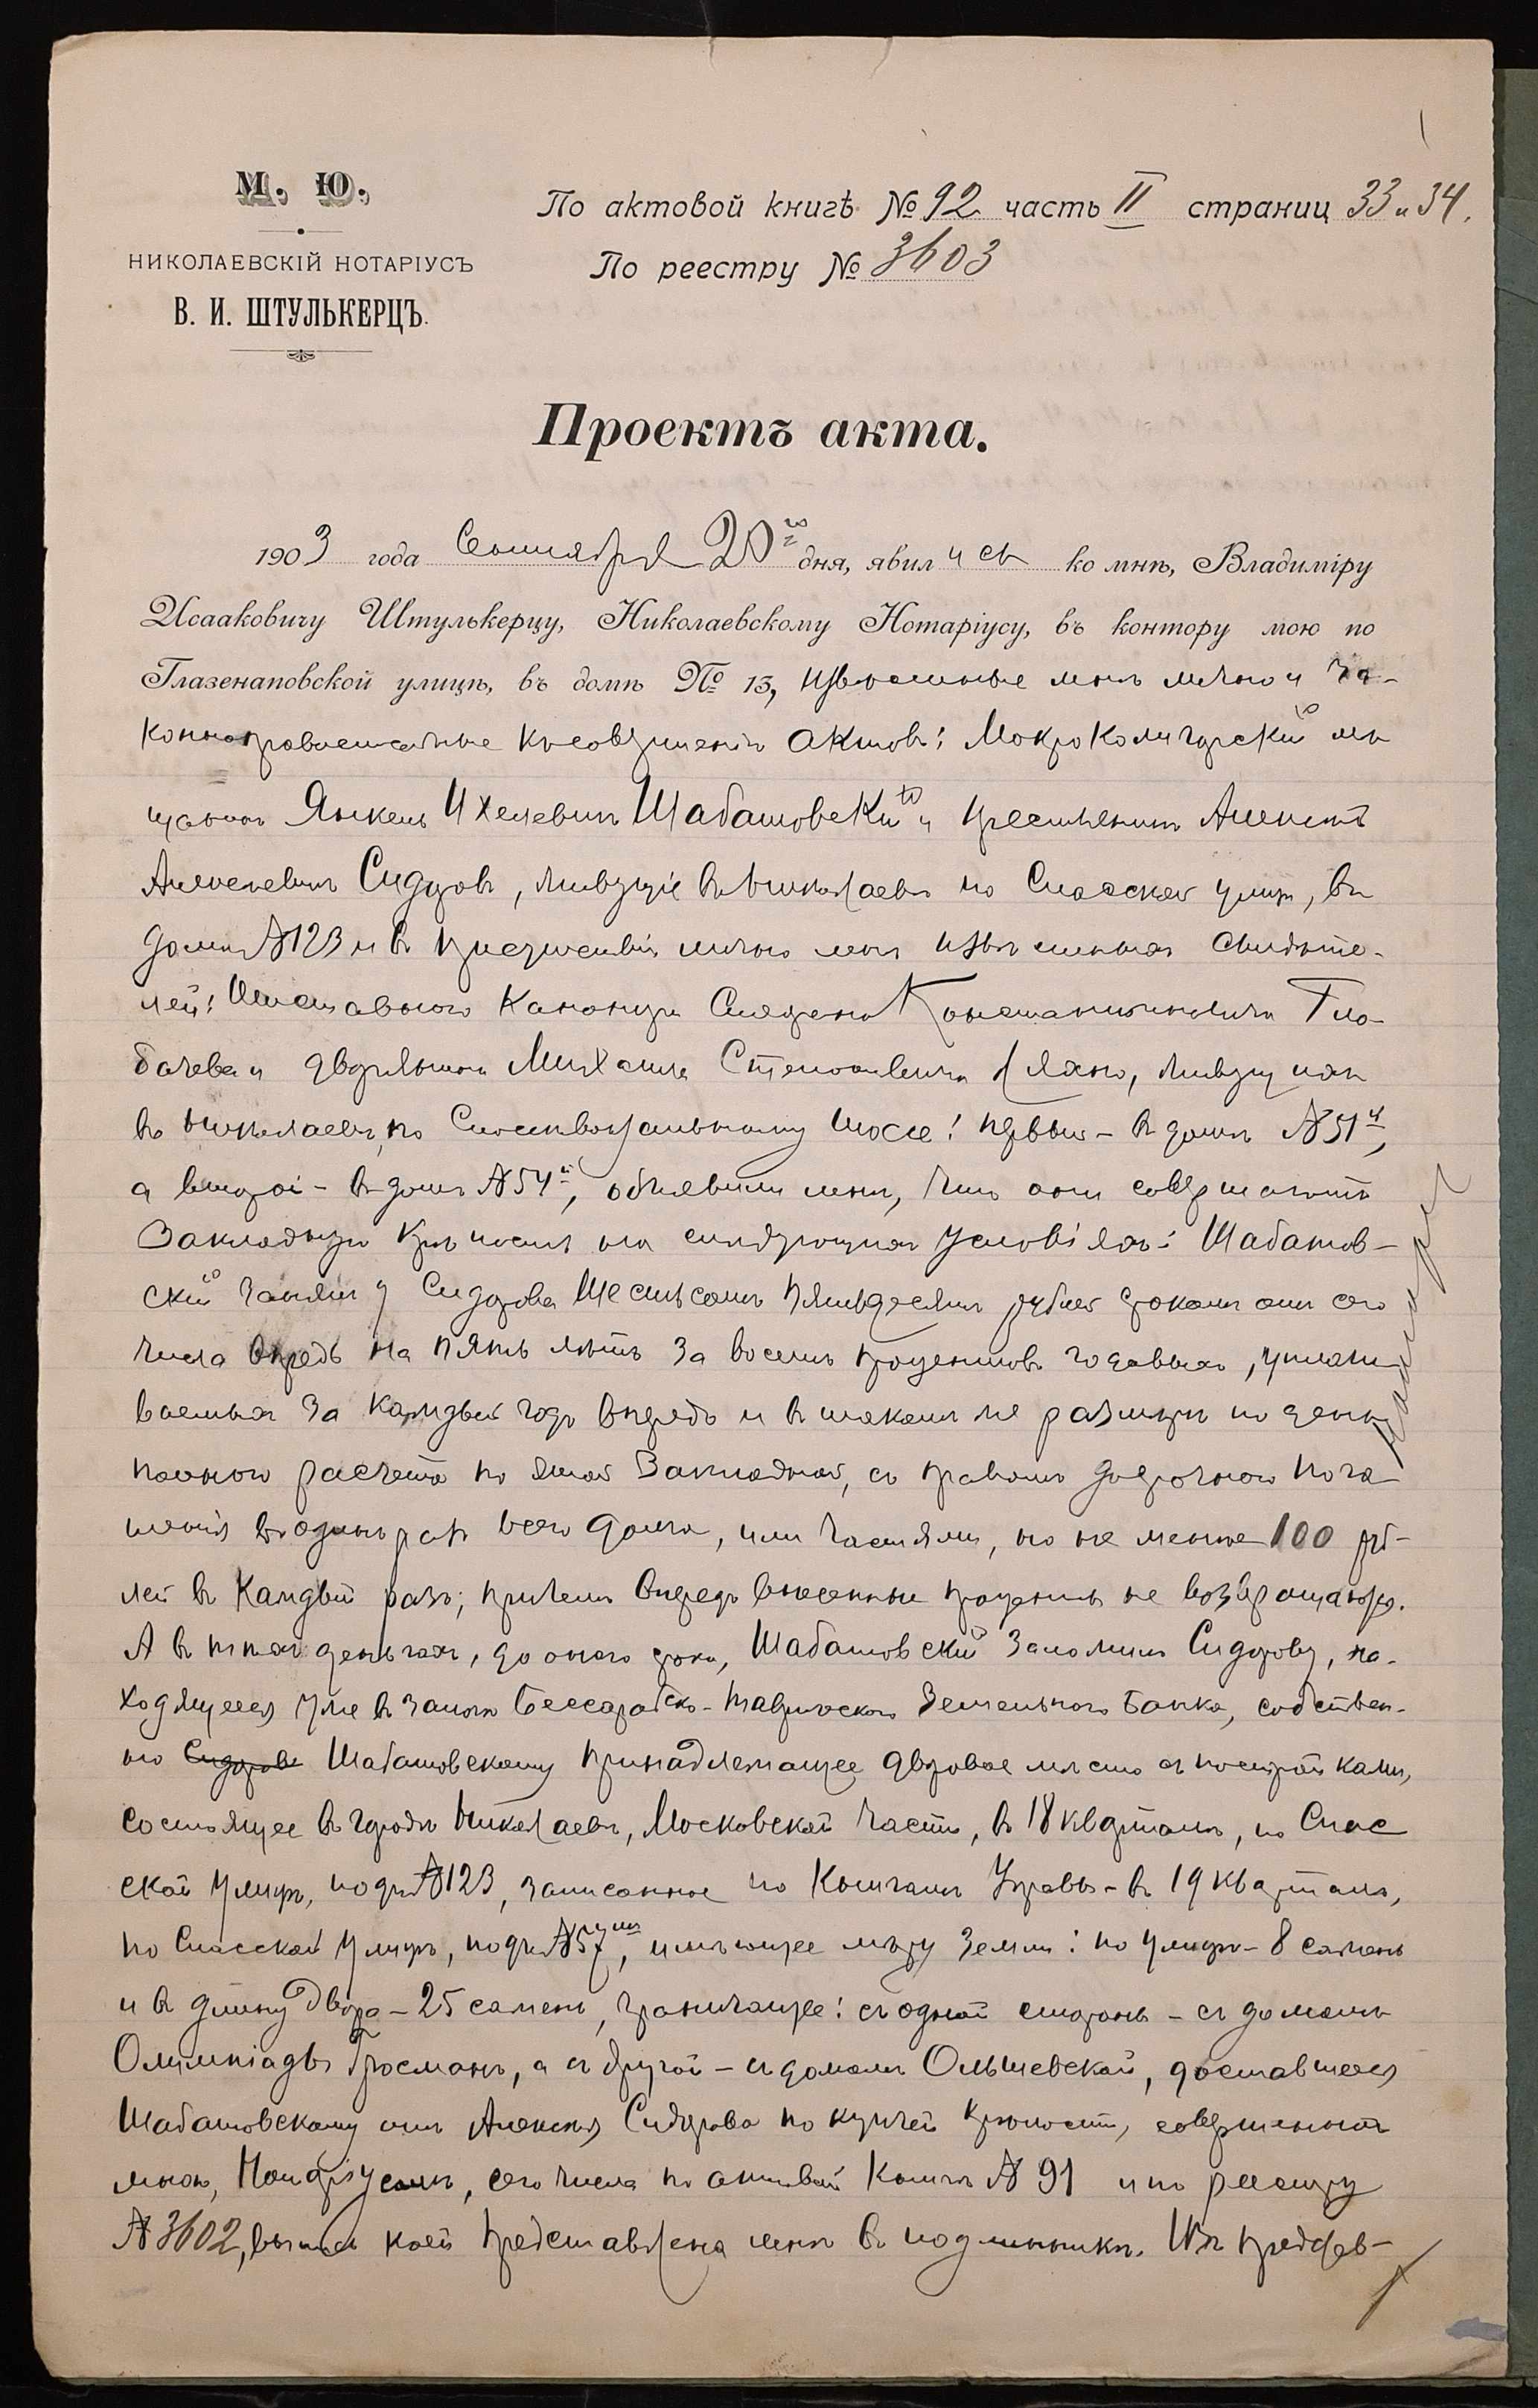 М. Ю.
НИКОЛАЕВСКІЙ НОТАРІУСЪ
В. И. ШТУЛЬКЕРЦЪ.
По актовой книгѣ № 92 часть II страниц 33 и 34.
По реестру № 3603
Проектъ акта.
1903 года Сентября 20го дня, явились ко мнѣ, Владиміру
Исааковичу Штулькерцу, Николаевскому Нотаріусу, въ контору мою по
Глазенаповской улицѣ, въ домѣ № 13, извѣстные мнѣ лично и за-
коннправоспособные къ совершенію актовъ: Мокрокалигурскій мѣ
щанинъ Янкель Ихелевичъ Шабатовскій и крестьянинъ Алексѣй
Алексѣевичъ Сидоровъ, живущіе въ Николаевѣ по Спасской улицѣ, въ
домѣ №123 и въ присутствіи лично мнѣ извѣстныхъ свидѣте-
лей: Отставного Канонира Константиновича
и дворянина Михаила Степановича Ляхно, живущихъ
въ Николаевѣ, по шоссе: первый - въ домѣ №51й,
а второй - въ домѣ №54й, объявили мнѣ, что они совершаютъ
Закладную крѣпость на слѣдующихъ условіяхъ: Шабатов-
скій занялъ у Сидорова Шестьсотъ пятьдесятъ рублей срокомъ отъ сего
числа впредь на пять лѣтъ за восемь процентовъ годовыхъ, уплачи
ваемыхъ за каждый годъ впередъ и въ такомъ же размѣрѣ по день
полнаго расчета по этой Закладной, съ правомъ досрочного пога
шенія въ одинъ разъ всего долга, или частями, но не менѣе 100 руб-
лей въ каждый разъ; причемъ впередъ внесенные проценты не возвращаются.
А въ тѣхъ деньгахъ, до оного срока, Шабатовскій заложилъ Сидорову, на-
ходящееся уже въ залогѣ Бессарабско-Таврическаго Земельнаго Банка, собствен-
но Сидорову Шабатовскому принадлежащее дворовое мѣсто съ постройками,
состоящее въ городѣ Николаевѣ, Московской части, въ 18 кварталѣ, по Спас
ской улицѣ, подъ №123, записанное по Книгамъ Управы - въ 19 кварталѣ,
по Спасской улицѣ, подъ №57мъ, имѣющее мѣру земли: по улицѣ - 8 сажень
и въ длину двора - 25 сажень, граничащее: съ одной стороны - съ домомъ
Олимпіады Гросманъ, а съ другой - съ домомъ Ольшевской, доставшееся
Шабатовскому отъ Алексѣя Сидорова по купчей крѣпости, совершенной
мною, Нотаріусомъ, сего числа по актовой Книгѣ № 91 и по реестру
№ 3602, выпись коей представлена мнѣ въ подлинникѣ. Изъ представ-